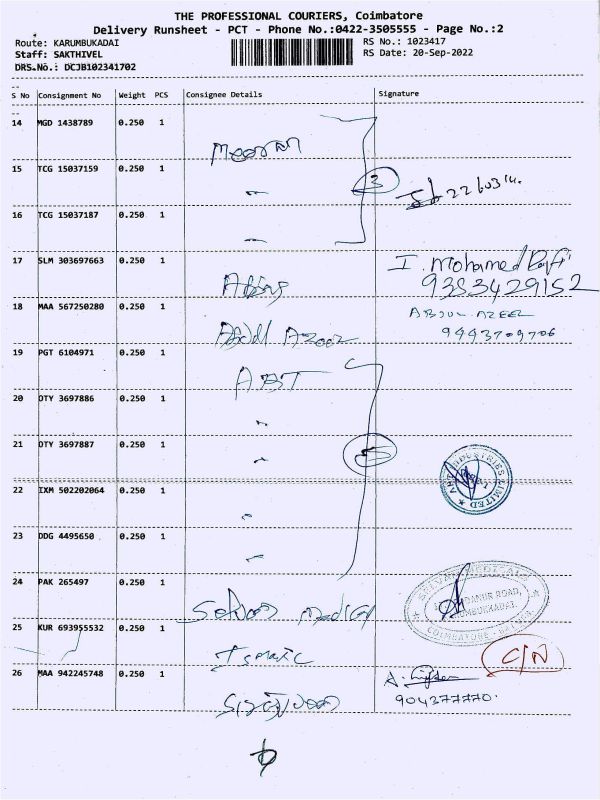 THE PROFESSIONAL COURIERS, Coimbatore
Delivery Runsheet - PCT - Phone No.:0422-3505555 - Page No.:2
Route: KARUMBUKADAI
Staff: SAKTHIVEL
DRS.No.: DCJB102341702
RS No.: 1023417
RS Date: 20-Sep-2022
S No Consignment No Weight PCS Consignee Details Signature
14 MGD 1438789 0.250 1
15 TCG 15037159 0.250 1
3
16 TCG 15037187 0.250 1
17 SLM 303697663 0.250 1
Abbas
I. Mohamed Rafi
9383429152
18 MAA 567250280 0.250 1
Abdul Azeez
ABDUL AZEEZ
9443709706
19 PGT 6104971 0.250 1
ABT
20 DTY 3697886 0.250 1
21 DTY 3697887 0.250 1
5
INDUSTRIES LIMITED
22 IXM 502202064 0.250 1
23 DDG 4495650 0.250 1
24 PAK 265497 0.250 1
Selvas Medical
SELVAS MEDICALS
ROAD,
COIMBATORE
25 KUR 693955532 0.250 1
Ismail
C/N
26 MAA 942245748 0.250 1
904277770.